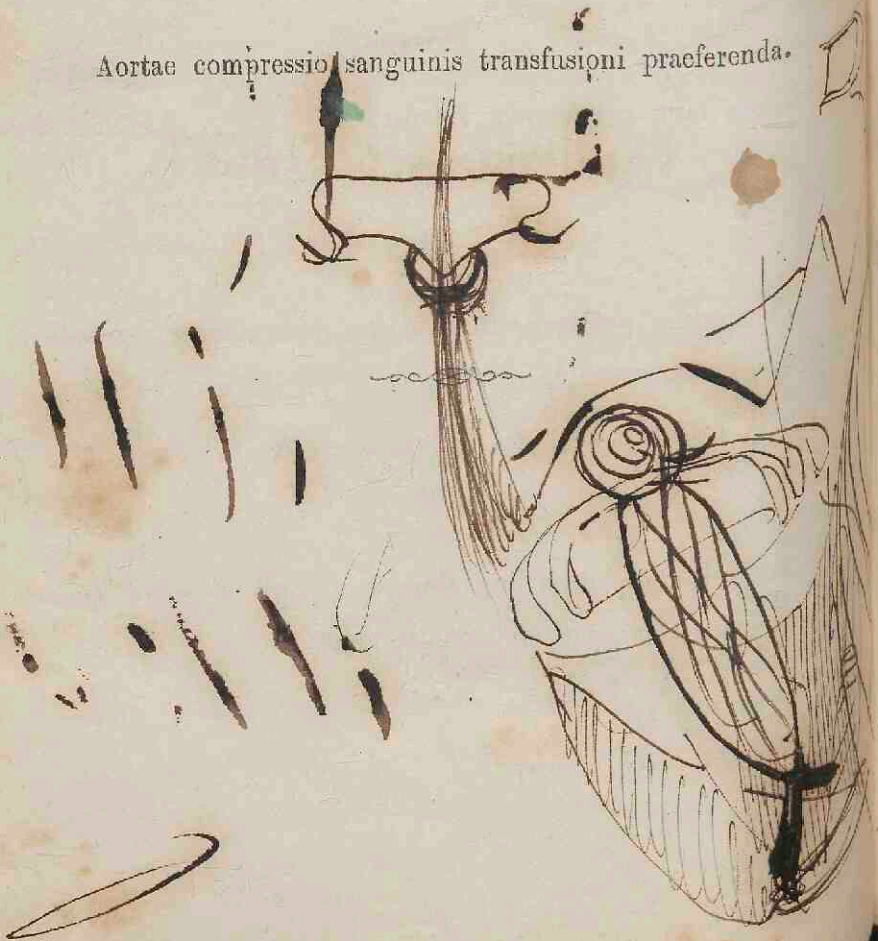 Aortae compressio sanguinis transfusioni praeferenda.